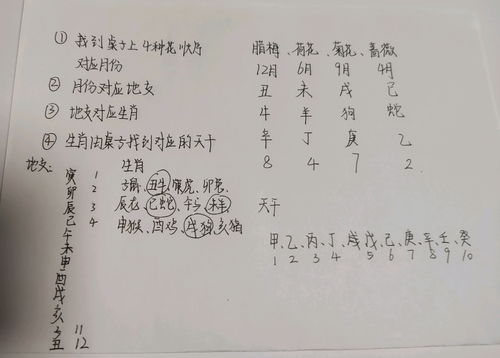 ① 找到桌子上4种花卡片
对应月份
② 月份对应地支
③ 地支对应生肖
④ 生肖由桌子找到对应的天干
腊梅、荷花、菊花、蔷薇
12月 6月 9月 4月
丑 未 戌 巳
牛 羊 狗 蛇
辛 丁 庚 乙
8 4 7 2
地支:
寅 1
卯 2
辰 3
巳 4
午
未
申
酉
戌
亥
子 11
丑 12
生肖
子鼠、丑牛、寅虎、卯兔、
辰龙、巳蛇、午马、未羊
申猴、酉鸡、戌狗、亥猪
天干
甲、乙、丙、丁、戊、己、庚、辛、壬、癸
1 2 3 4 5 6 7 8 9 10